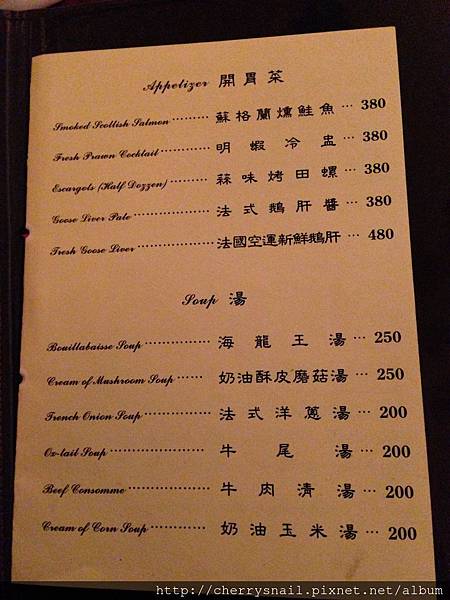 Appetizer 開胃菜
Smoked Scottish Salmon ·········· 蘇格蘭燻鮭魚 ··· 380
Fresh Prawn Cocktail ············· 明蝦冷盅 ··· 380
Escargots (Half Dozzen) ·········· 蒜味烤田螺 ··· 380
Goose Liver Pate ··················· 法式鵝肝醬 ··· 380
Fresh Goose Liver ·················· 法國空運新鮮鵝肝 ··· 480
Soup 湯
Bouillabaisse Soup ················ 海龍王湯 ··· 250
Cream of Mushroom Soup ······ 奶油酥皮蘑菇湯 ··· 250
Trench Onion Soup ················ 法式洋蔥湯 ··· 200
Ox-tail Soup ························ 牛尾湯 ··· 200
Beef Consomme ····················· 牛肉清湯 ··· 200
Cream of Corn Soup ············ 奶油玉米湯 ··· 200
http://cherrysnail.pixnet.net/album